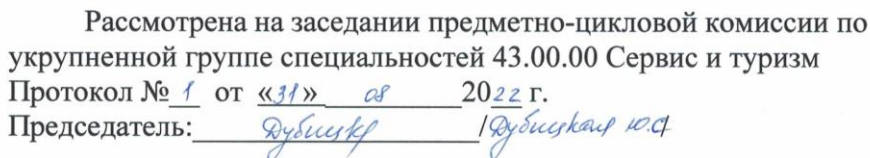 Рассмотрена на заседании предметно-цикловой комиссии по
укрупненной группе специальностей 43.00.00 Сервис и туризм
Протокол № 1 от «31» 08 2022 г.
Председатель: /Дубицкая Ю.С/